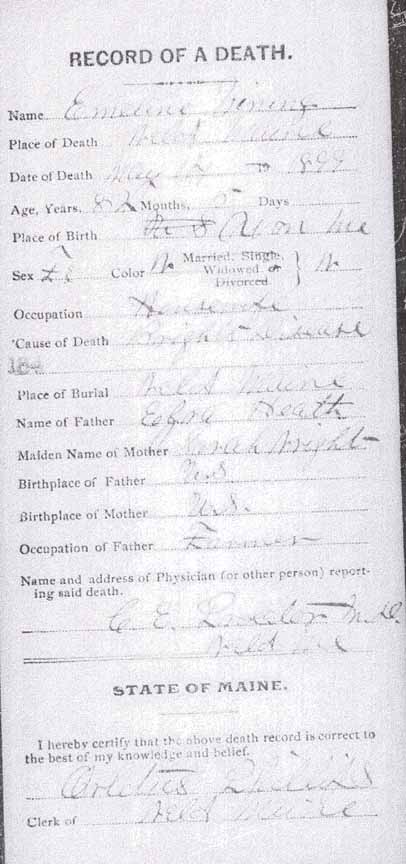 RECORD OF A DEATH.
Name Emeline
Place of Death Weld Maine
Date of Death May 1899
Age, Years, 82 Months, 5 Days
Place of Birth Me
Sex Color W Married, Single, Widowed or Divorced } W
Occupation Housewife
Cause of Death Brights Disease
189
Place of Burial Weld Maine
Name of Father Ezra Heath
Maiden Name of Mother Sarah Wright
Birthplace of Father U.S.
Birthplace of Mother U.S.
Occupation of Father Farmer
Name and address of Physician (or other person) report-
ing said death.
C. E. Proctor M.D.
Weld Me
STATE OF MAINE.
I hereby certify that the above death record is correct to
the best of my knowledge and belief.
Clerk of Weld Maine